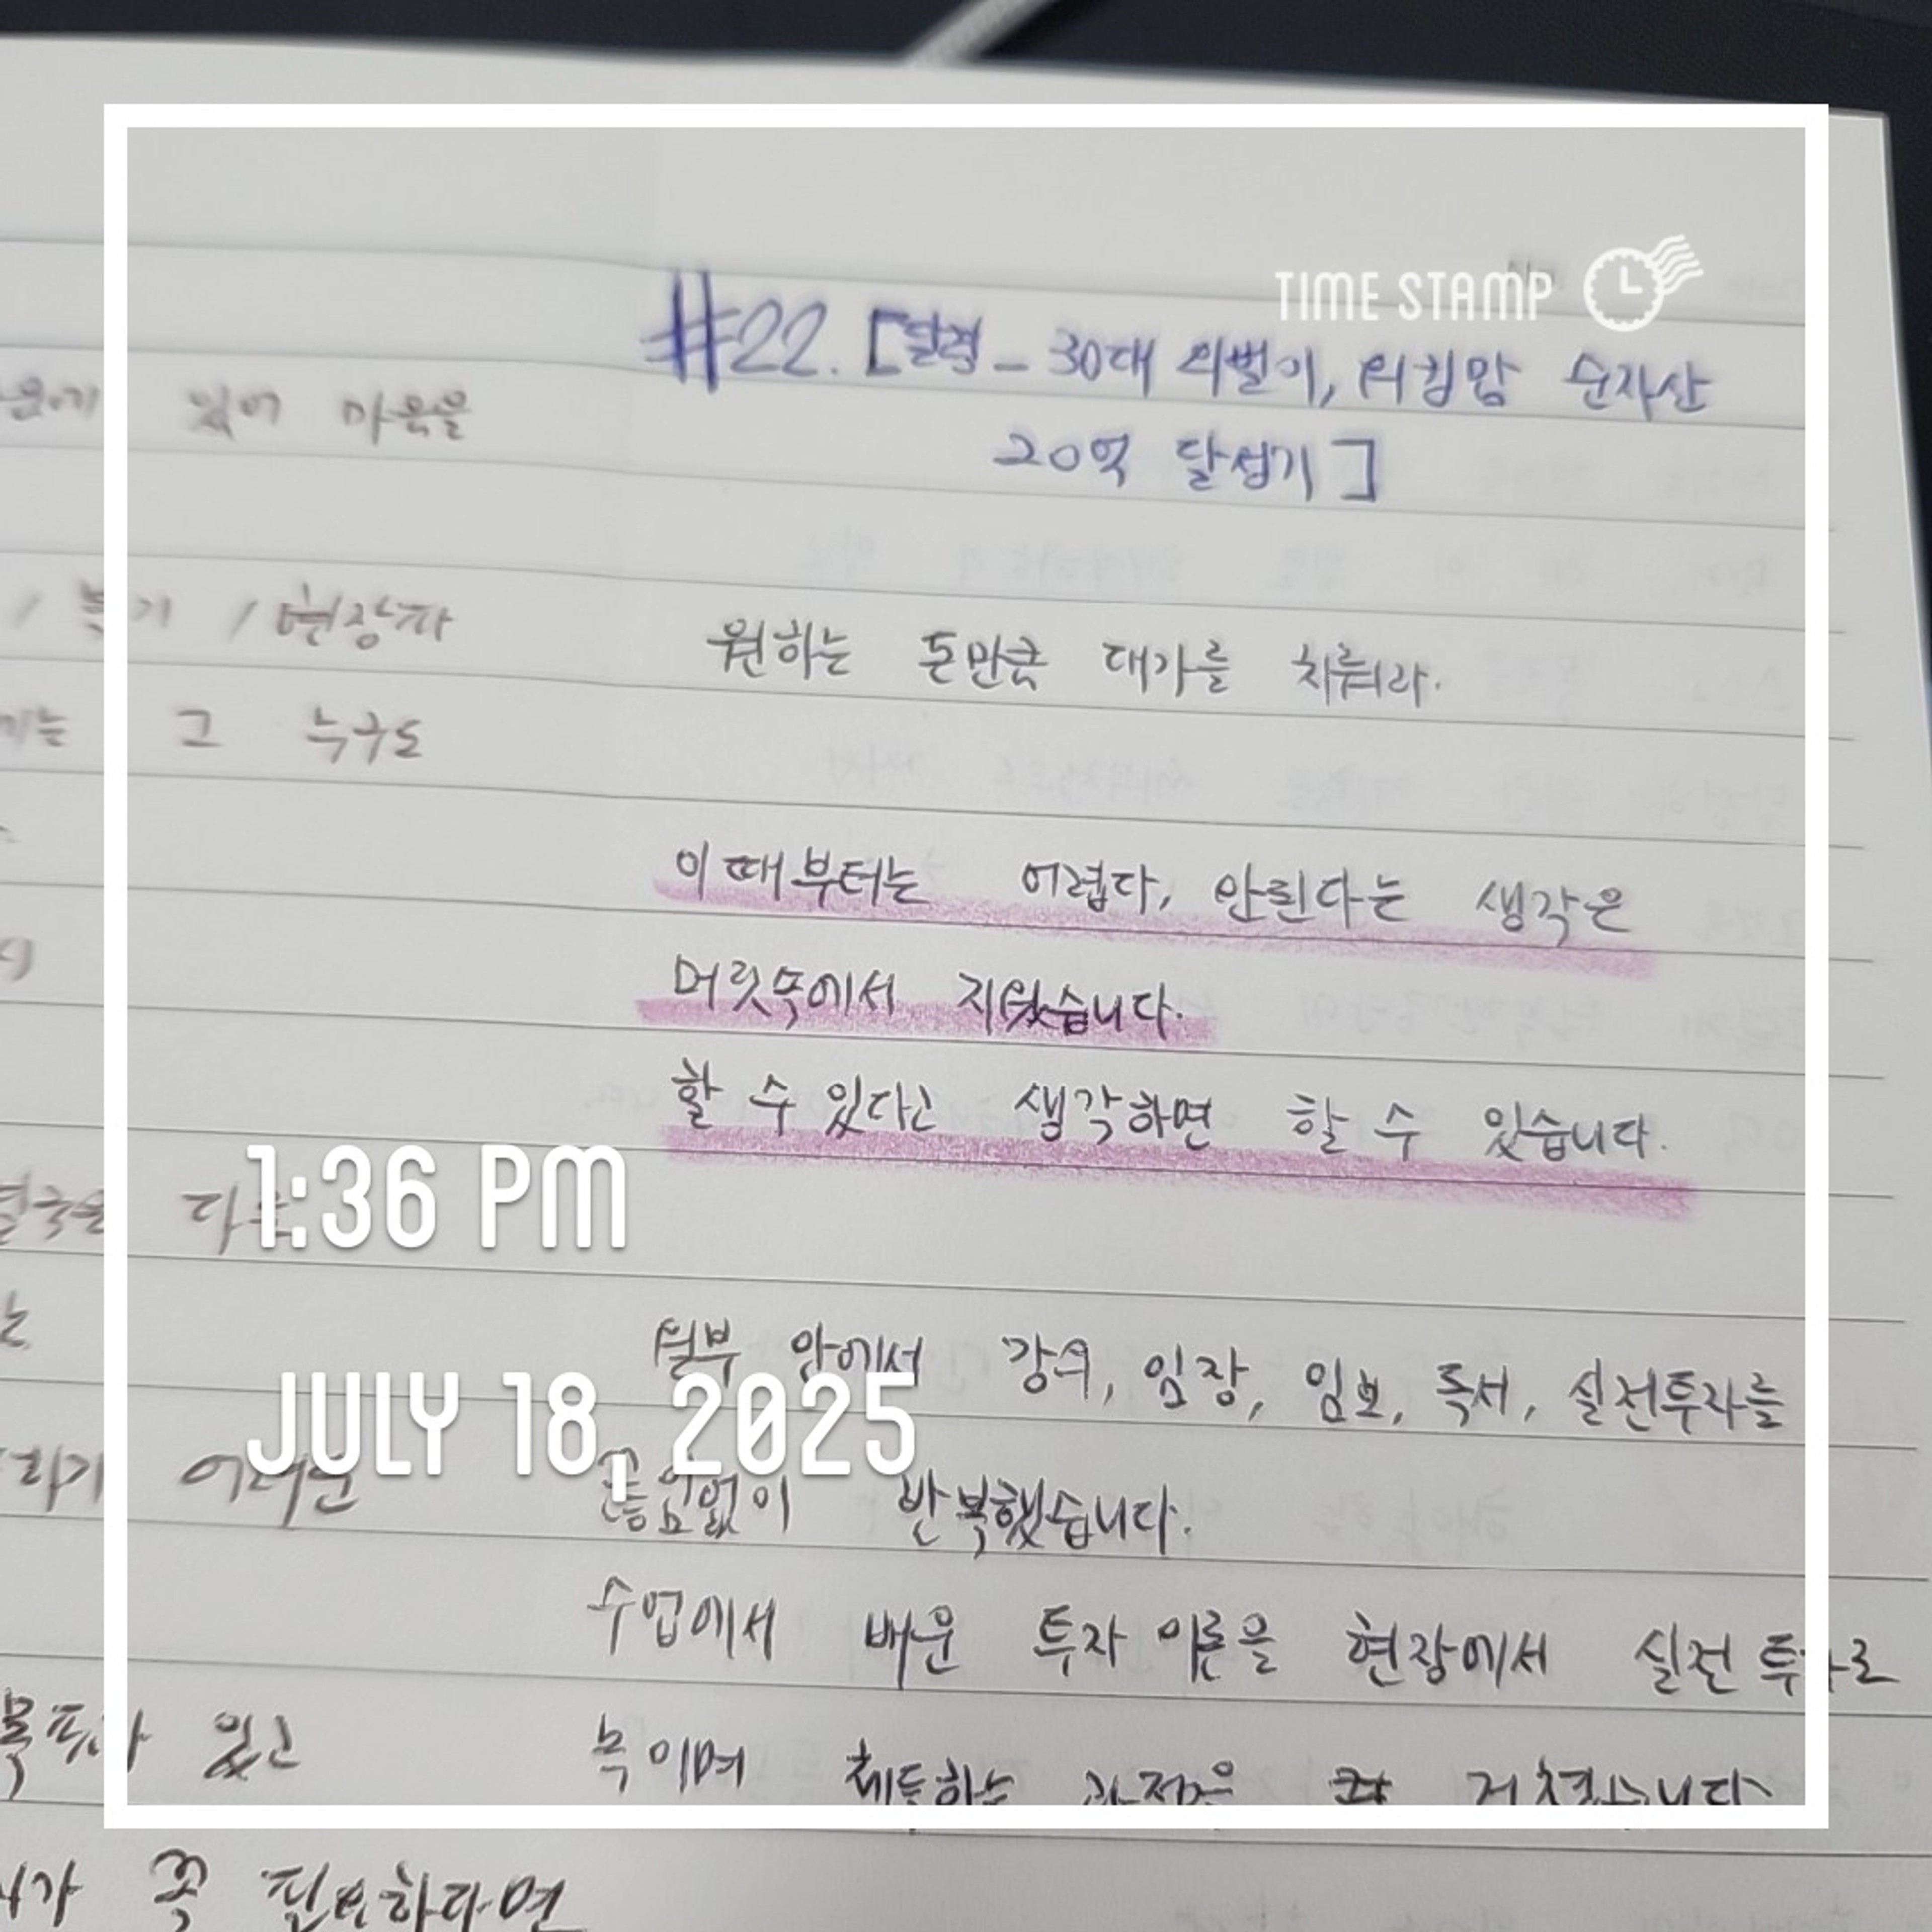 TIME STAMP
#22. [달검 - 30대 외벌이, 워킹맘 순자산
20억 달성기]
원하는 돈만큼 대가를 치뤄라.
이때부터는 어렵다, 안된다는 생각은
머릿속에서 지웠습니다.
할 수 있다고 생각하면 할 수 있습니다.
월부 안에서 강의, 임장, 임보, 독서, 실전투자를
끊임없이 반복했습니다.
수업에서 배운 투자 이론을 현장에서 실전
녹이며 체득하는 과정을 거쳤습니다
있어 마음을
/ 복기 / 현장
그 누구도
어려운
있고
꼭 필요하다면
1:36 PM
JULY 18, 2025